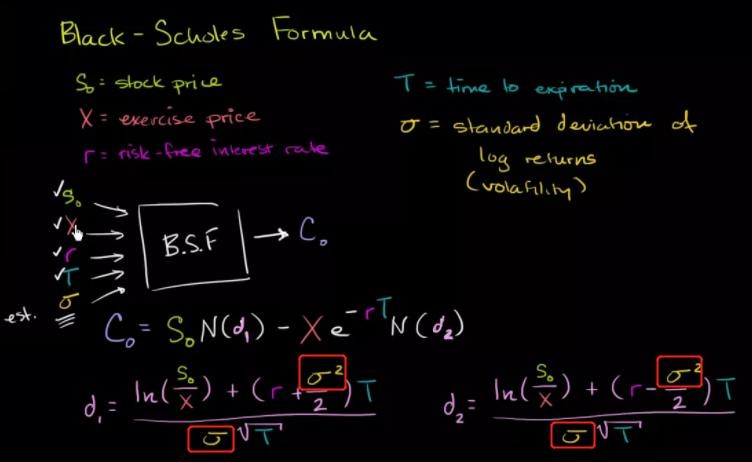 Black-Scholes Formula
S₀ = stock price
X = exercise price
r = risk-free interest rate
T = time to expiration
σ = standard deviation of
log returns
(volatility)
✓S₀
✓X
✓r
✓T
est. σ
B.S.F
C₀
C₀ = S₀N(d₁) - Xe^-rT N(d₂)
d₁ = ln(S₀/X) + (r + σ²/2)T / σ√T
d₂ = ln(S₀/X) + (r - σ²/2)T / σ√T